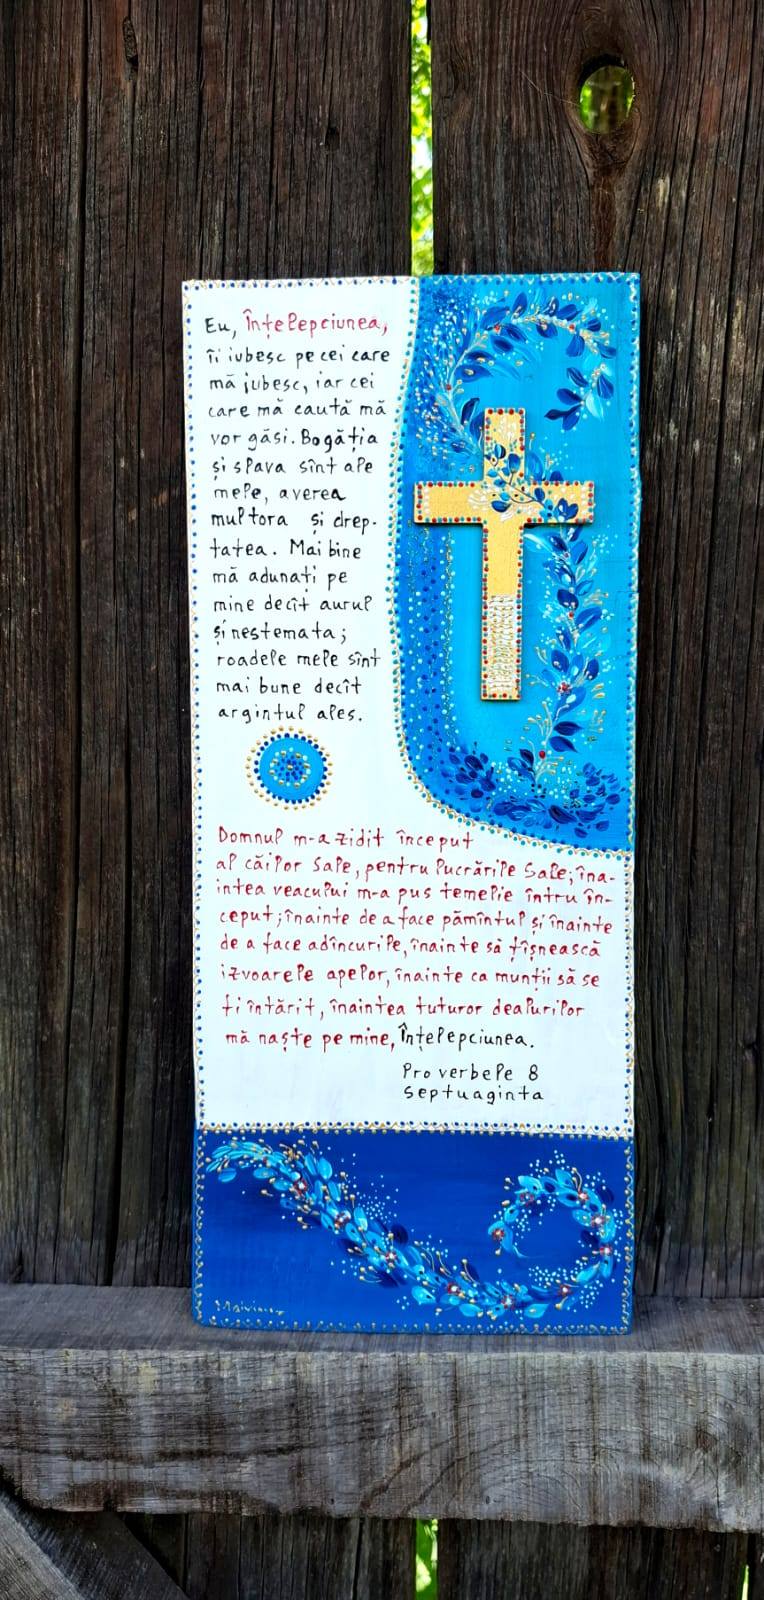 Eu, Înțelepciunea,
îi iubesc pe cei care
mă iubesc, iar cei
care mă caută mă
vor găsi. Bogăția
și slava sînt ale
mele, averea
multora și drep-
tatea. Mai bine
mă adunați pe
mine decît aurul
și nestemata;
roadele mele sînt
mai bune decît
argintul ales.
Domnul m-a zidit început
al căilor Sale, pentru lucrările Sale; îna-
intea veacului m-a pus temelie întru în-
ceput; înainte de a face pămîntul și înainte
de a face adîncurile, înainte să țîșnească
izvoarele apelor, înainte ca munții să se
fi întărit, înaintea tuturor dealurilor
mă naște pe mine, Înțelepciunea.
Proverbele 8
Septuaginta